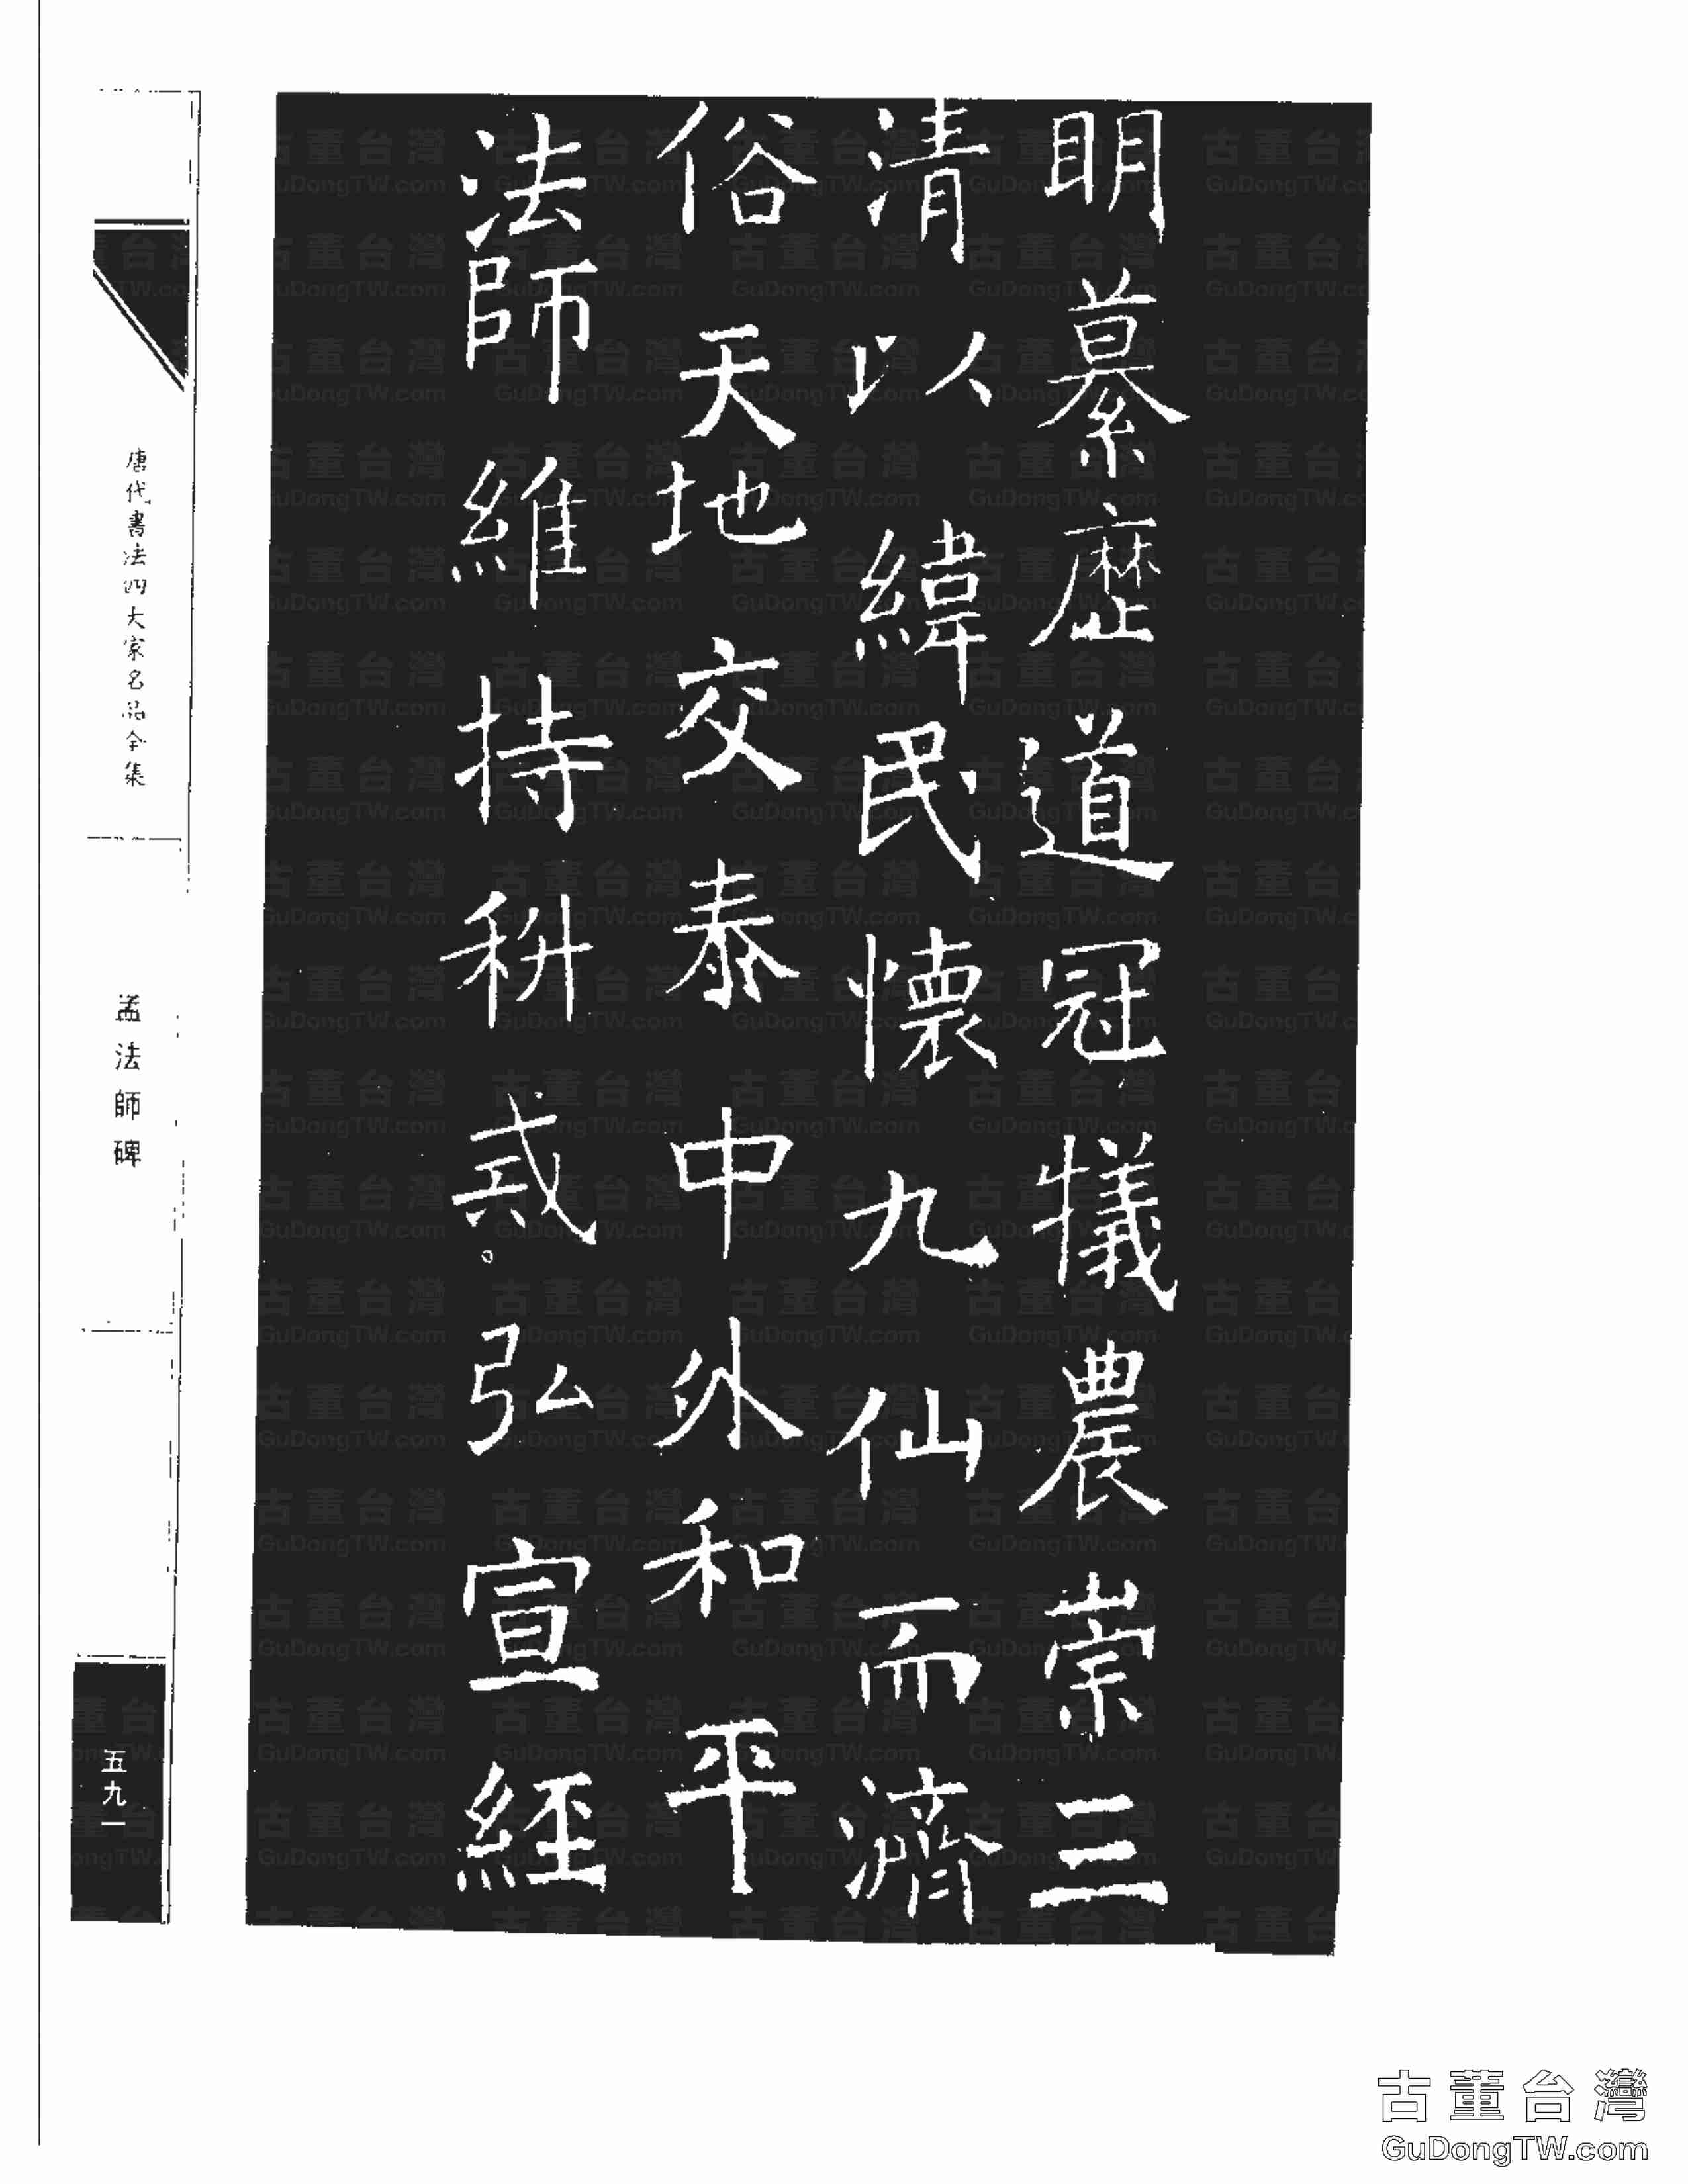 明纂歷道冠犠農崇三
清以緯民懷九仙而濟
俗天地交泰中外和平
法師維持科戒弘宣經
唐代書法四大家名品全集
孟法師碑
五九一
古董台灣
GuDongTW.com